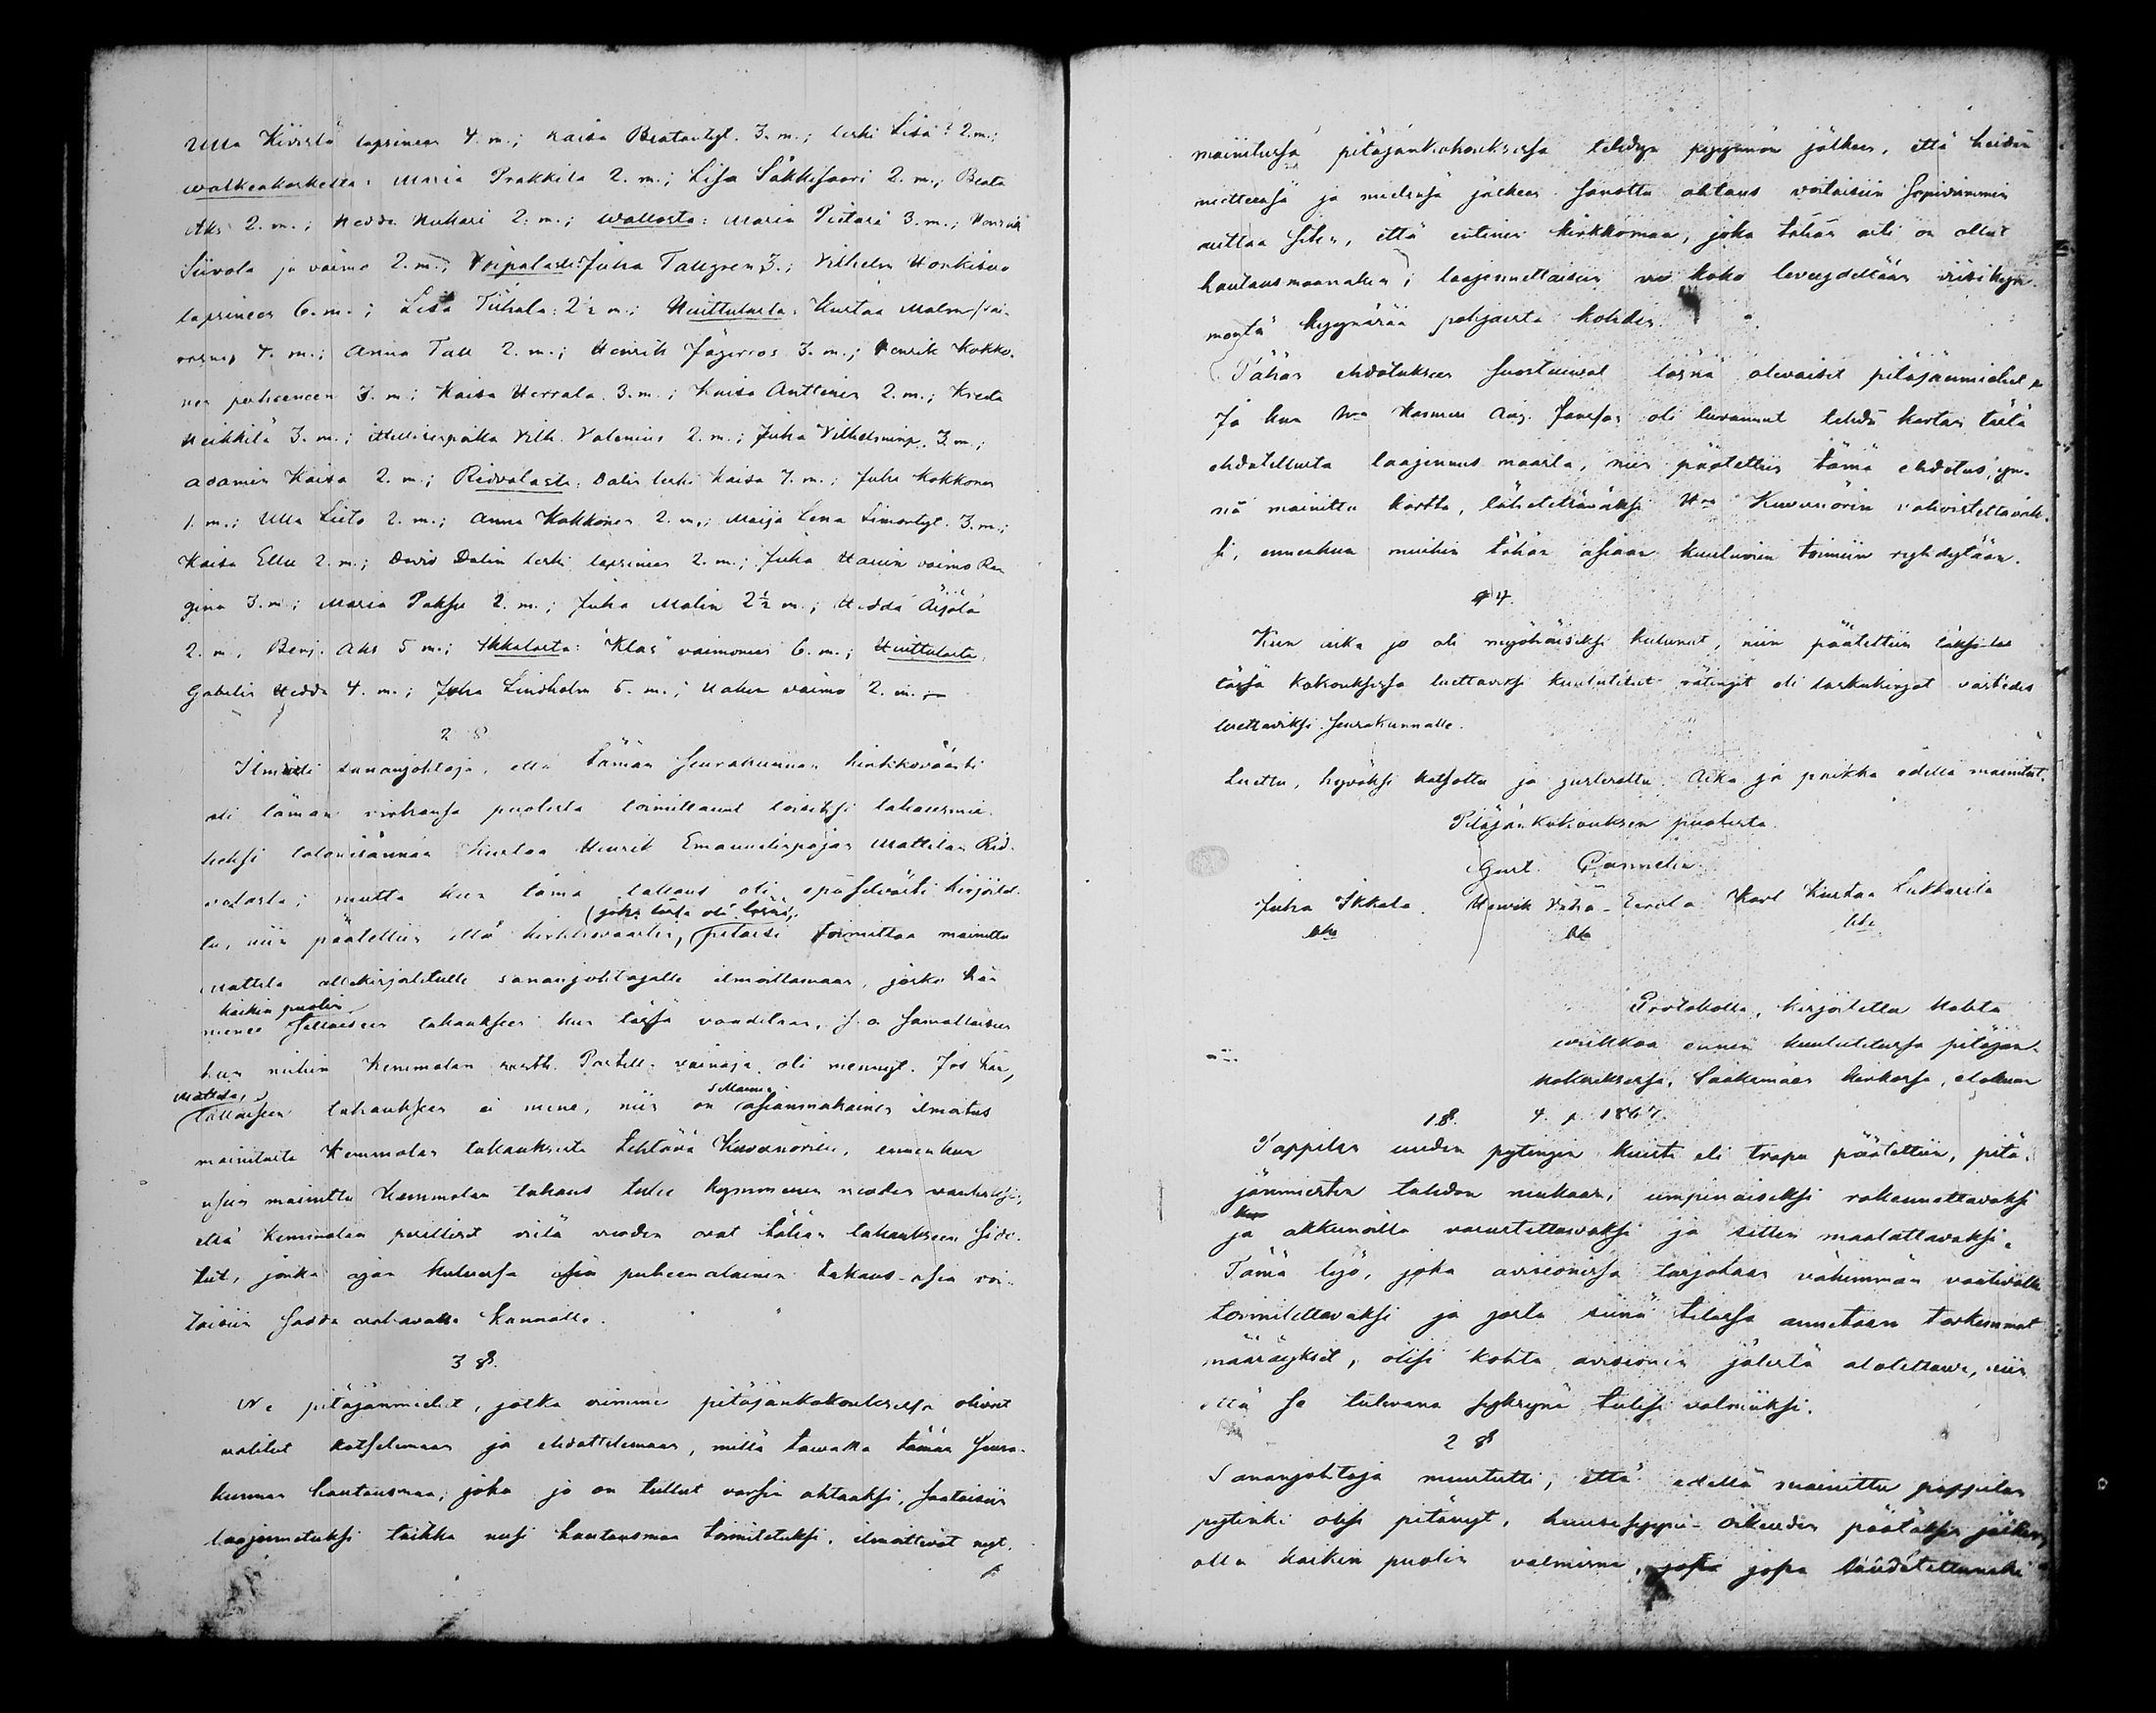 Ulla Kivistö lapsineen 4. m.; Kaisa Beatantyt. 3. m.; leski Lisa 2. m.;
Walkeakoskella: Maria Prakkila 2. m.; Lisa Säkkisaari 2. m.; Beata
Aks 2. m.; Hedda Nuhari 2. m.; Wallosta: Maria Pietari 3. m.; Henrik
Siivola ja vaimo 2. m.; Voipalasta Juha Tallgren 3.; Vilhelm Honkisuo
lapsineen 6. m.; Lisa Tiihala: 2½ m.; Huittulasta: Kustaa Malm
4. m.; Anna Tall 2. m.; Henrik Jägerroos 3. m.; Henrik Kokko-
nen puheeneen 3. m.; Kaisa Herrala 3. m.; Kaisa Anttinen 2. m.; Kreeta
Heikkilä 3. m.; Vilh. Valenius 2. m.; Juha Vilhelminp. 3. m.;
Adamin Kaisa 2. m.; Ridvalasta: Dalin leski Kaisa 7. m.; Juha Kokkonen
1. m.; Ulla Lieto 2. m.; Anna Kokkonen 2. m.; Maija Lena Simontyt. 3. m.;
Kaisa Ellu 2. m.; David Dalin leski lapsineen 2. m.; Juha vaimo Re-
gina 3. m.; Maria Pakse 2. m.; Juha Malin 2½ m.; Hedda Äijälä
2. m. Benj. Aks 5 m.; Ikkalasta: "Klas" vaimoneen 6. m.; Huittulasta,
Gabelin Hedda 4. m.; Juha Lindholm 5. m.; vaimo 2. m.
2 §
Ilmoitti sananjohtaja, että tämän seurakunnan kirkkoväärti
oli tämän virkansa puolesta toimittanut toiseksi takausmie-
heksi talonisännän Kustaa Henrik Emanuelinpojan Mattilan Rid-
valasta; mutta kun tämä takaus oli epäselvästi kirjoitet-
(joka tässä oli läsnä)
tu, niin päätettiin että kirkkoväärtin, pitäisi toimittaa mainittu
Mattila allekirjoitetulle sananjohtajalle ilmoittamaan, josko hän
kaikin puolin
menee sellaiseen takaukseen kun tässä vaaditaan, s. o. samallaiseen
kun mihin Kemmolan vainaja oli mennyt. Jos hän,
Mattila,
sellainen
tällaiseen takaukseen ei mene, niin on asianmukainen ilmoitus
mainitusta Kemmolan takauksesta tehtävä Kuvernörille, ennenkun
usein mainittu Kemmolan takaus tulee kymmenen vuoden vanhaksi,
että Kemmolan perilliset vielä vuoden ovat tähän takaukseen sido-
tut, jonka ajan kuluessa puheenalainen takaus-asia voi-
taisiin saada vakavalle kannalle.
3 §.
Ne pitäjänmiehet, jotka viimme pitäjänkokouksessa olivat
valitut katselemaan ja ehdottelemaan, millä tavalla tämän seura-
kunnan hautausmaa, joka jo on tullut varsin ahtaaksi, saataisiin
laajennetuksi taikka uusi hautausmaa toimitetuksi, ilmoittivat nyt,
mainitussa pitäjänkokouksessa tehdyn pyynnön jälkeen, että heidän
mitteensä ja mielensä jälkeen sanottu ahtaus voitaisiin sopivimmin
auttaa siten, että entinen kirkkomaa, joka tähän asti on ollut
hautausmaanakin, laajennettaisiin koko leveydeltään viisikym-
mentä kyynärää pohjaista kohden.
Tähän ehdotukseen suostuivat läsnä olevaiset pitäjänmiehet
Ja kun Hra Aug. oli luvannut tehdä kartan tästä
ehdotellusta laajennus maasta, niin päätettiin tämä ehdotus, yn-
nä mainittu kartta, lähetettäväksi Hra Kuvernörin vahvistettavak-
si, ennenkun muihin tähän asiaan kuuluviin toimiin ryhdytään.
§ 4.
Kun aika jo oli myöhäiseksi kulunut, niin päätettiin
tässä kokouksessa luettaviksi kuulutetut rätingit eli laskukirjat vastedes
luettaviksi seurakunnalle.
Luettu, hyväksi katsottu ja justeerattu. Aika ja paikka edellä mainitut.
Pitäjänkokouksen puolesta.
Gust. Cannelin.
Juha Ikkala. Henrik Vähä-Eerola Karl Kustaa Lukkarila
Protokolla, kirjoitettu kahta
viikkoa ennen kuulutetussa pitäjän-
kokouksessa, Sääksmäen kirkossa, elokuun
4. p. 1867.
1 §.
Pappilan uuden pytingin kuisti eli trapu päätettiin, pitä-
jänmiesten tahdon mukaan, umpinaiseksi rakennettavaksi
ja akkunoilla varustettavaksi ja sitten maalattavaksi.
Tämä työ, joka avisionissa tarjotaan vähimmän vaativalle
toimitettavaksi ja josta siinä tilassa annetaan tarkemmat
määräykset, olisi kohta avisionin jälestä alotettava, niin
että se tulevana syksynä tulisi valmiiksi.
2 §
Sananjohtaja muistutti, että edellä mainittu pappilan
pytinki olisi pitänyt, huusesyyni-oikeuden päätöksen jälkeen,
olla kaikin puolin valmiina, jopa